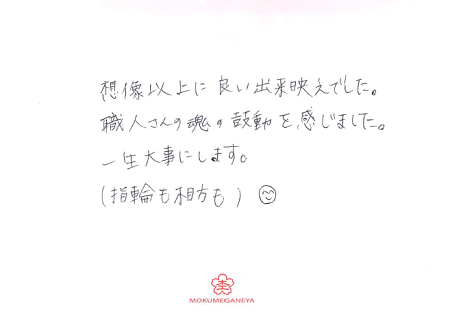 想像以上に良い出来映えでした。
職人さんの魂の鼓動を感じました。
一生大事にします。
(指輪も相方も)
MOKUMEGANEYA